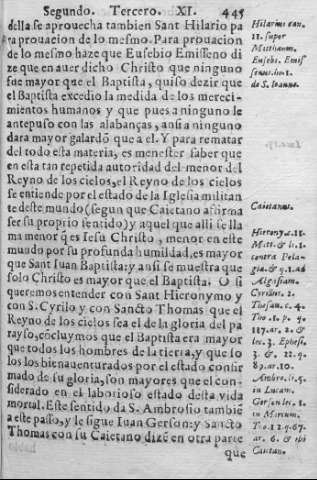 Segundo. Tercero. XI. 445
della se aprouecha tambien Sant Hilario pa
ra prouacion de lo mesmo. Para prouacion
de lo mesmo haze que Eusebio Emisseno di
ze que en auer dicho Christo que ninguno
fue mayor que el Baptista, quiso dezir que
el Baptista excedio la medida de los mereci-
mientos humanos y que pues a ninguno le
antepuso con las alabanças, ansi a ninguno
dara mayor galardõ que a el. Y para rematar
del todo esta materia, es menester saber que
en esta tan repetida autoridad del menor del
Reyno de los cielos, el Reyno de los cielos
se entiende por el estado de la Iglesia militan
te deste mundo (segun que Caietano afirma
ser su proprio sentido) y aquel que alli se lla
ma menor q̃ es Iesu Christo, menor en este
mundo por su profunda humildad, es mayor
que Sant Iuan Baptista: y ansi se muestra que
solo Christo es mayor que el Baptista. O si
queremos entender con Sant Hieronymo y
con S. Cyrilo y con Sancto Thomas que el
Reyno de los cielos sea el de la gloria del pa
rayso, cõcluymos que el Baptista era mayor
que todos los hombres de la tierra, y que so
los los bienauenturados por el estado confir
mado de su gloria, son mayores que el con-
siderado en el laborioso estado desta vida
mortal. Este sentido da S. Ambrosio tambiẽ
a este passo, y le sigue Iuan Gerson: y Sancto
Thomas con su Caietano dizẽ en otra parte
que
Hilarius can.
11. super
Matthæum.
Euseb. Emis
senus.
de S. Ioanne.
Caietanus.
Hierony. c. 11.
Matt. & li. 1.
contra Pela-
gia. & q. 1. ad
Algasiam.
Cyrillus. 2.
Thesau. c. 4.
Tho. 1. p. q.
117. ar. 2. &
lec. 3. Ephes.
3. & 22. q.
89. ar. 10.
Ambro. li. 5.
in Lucam.
Gerson lec. 1.
in Marcum.
Tho. 12. q. 67.
ar. 6. & ibi
Caietan.